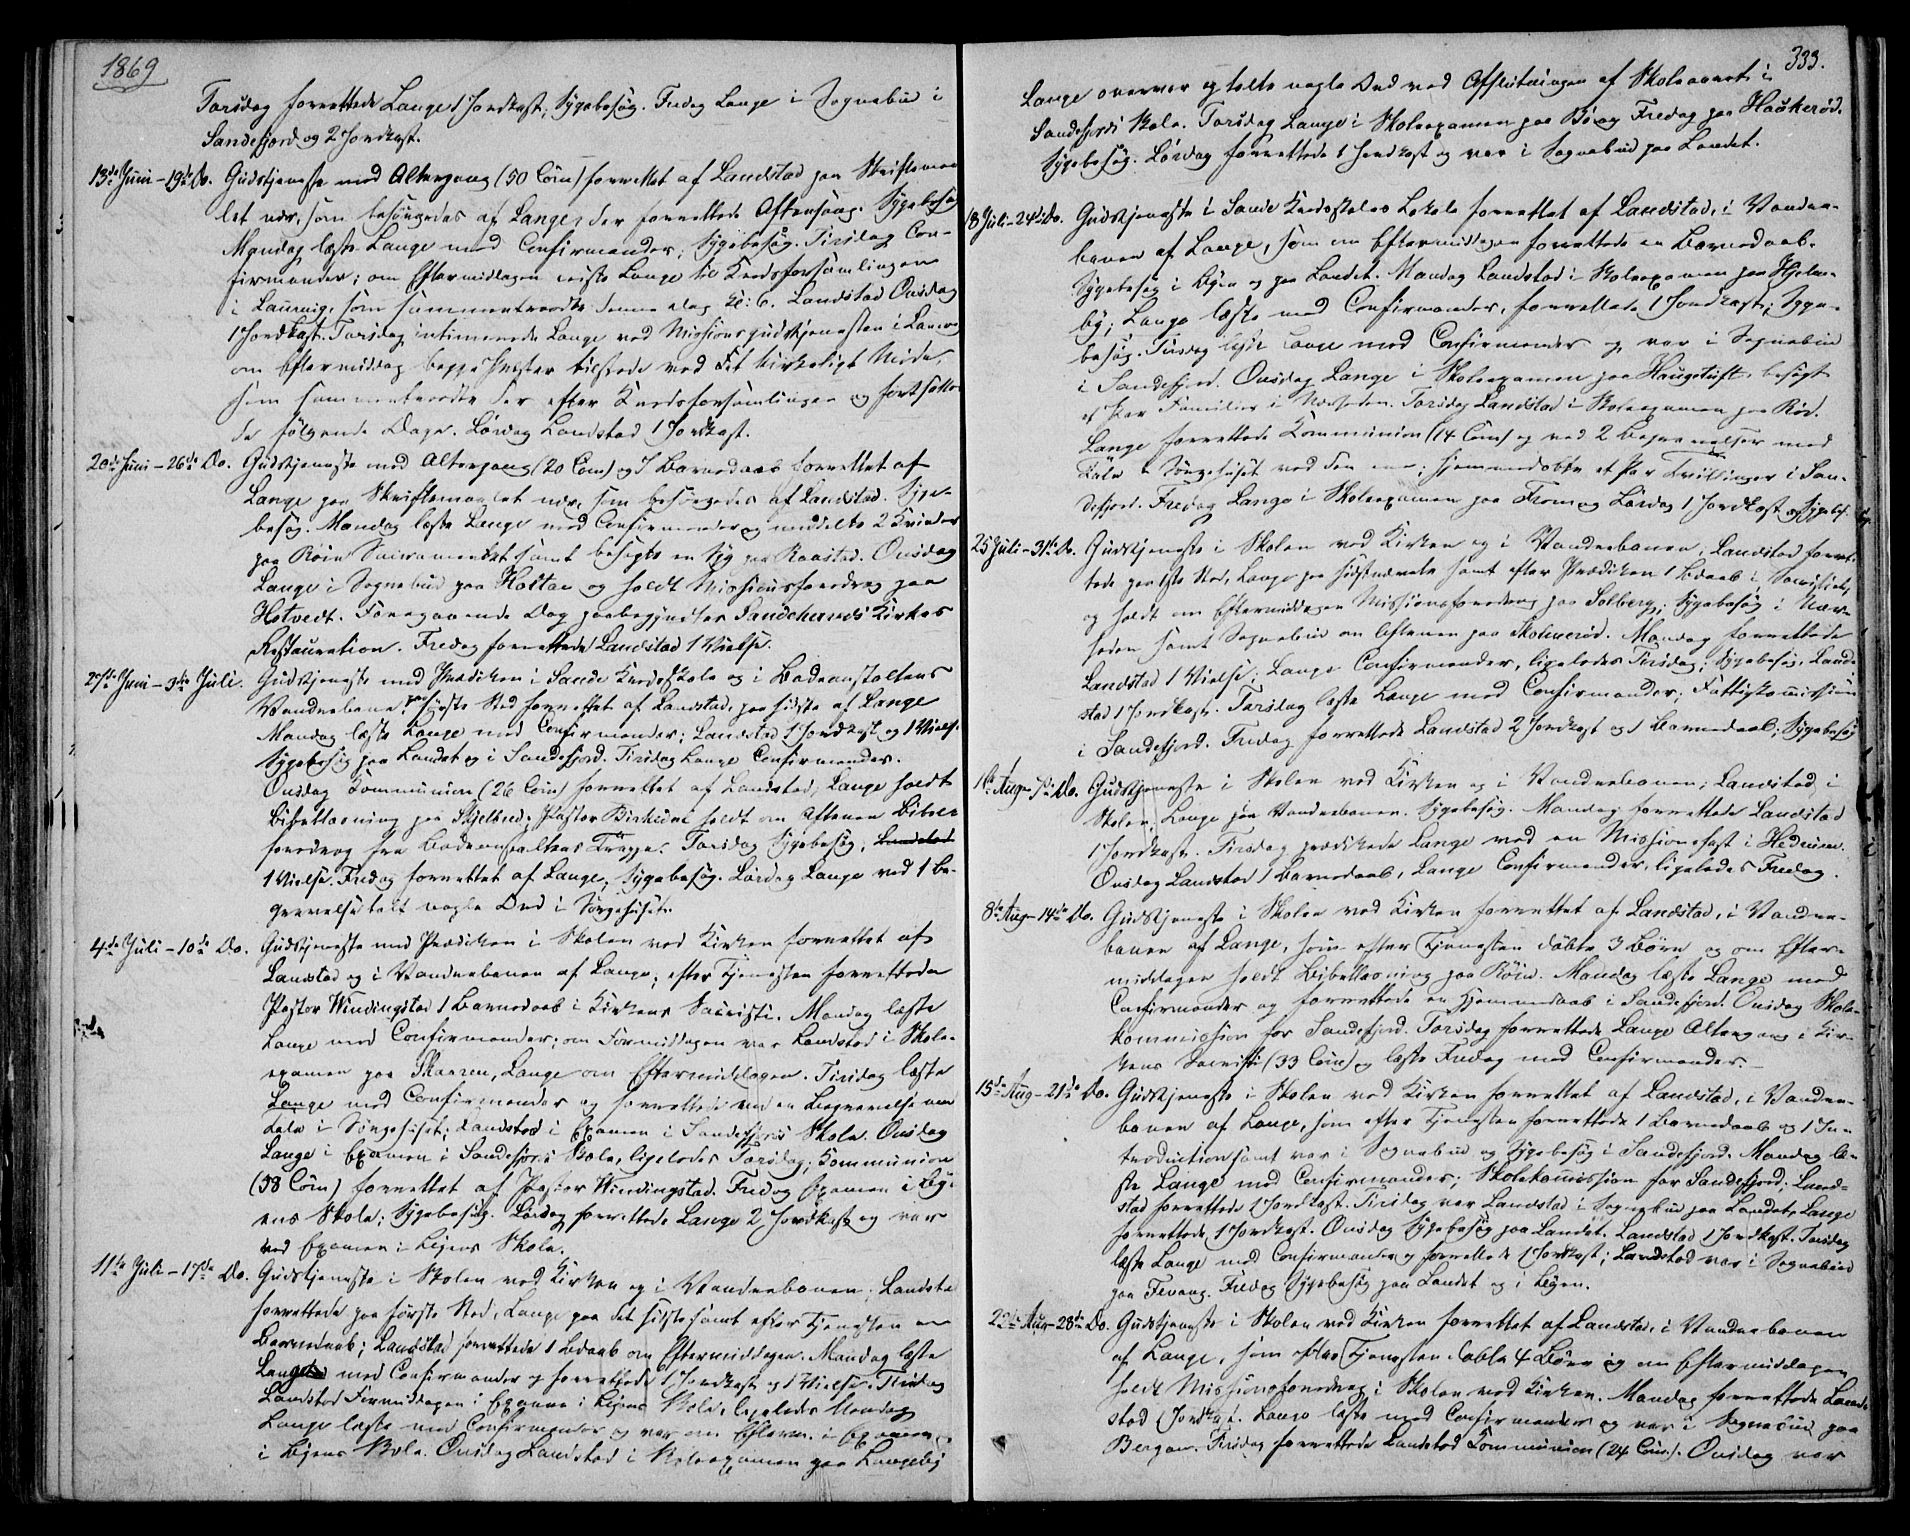 1869
Torsdag forrettede Lange 1 Jordkast, Sygebesøg. Fredag Lange i Sognebud i
Sandefjord og 2 Jordkast.
13de Juni – 19de Do. Gudstjeneste med Altergang (50 Com) forrettet af Landstad paa Skriftemaa
let nær, som besørgedes af Lange, der forrettede Aftensang. Sygebesøg
Mandag læste Lange med Confirmander; Sygebesøg. Tirsdag Con-
firmander; om Eftermiddagen reiste Lange til Kredsforsamlingen
i Laurvig, som sammentraadte denne dag Kl: 6. Landstad Onsdag
1 Jordkast. Torsdag intimerede Lange ved Missionsgudstjenesten i Laurvig
om Eftermiddag begge Præster tilstede ved Det kirkelige Møde,
som sammentraadte der efter Kredsforsamlingen og fortsatte
de følgende Dage. Lørdag Landstad 1 Jordkast.
20de Juni – 26de Do. Gudstjeneste med Altergang (20 Com) og 7 Barnedaab forrettet af
Lange paa Skriftemaalet nær, som besørgedes af Landstad. Syge-
besøg. Mandag læste Lange med Confirmander og meddelte 2 Kvinder
paa Røin Sacramentet samt besøgte en Syg paa Raastad. Onsdag
Lange i Sognebud paa Haltae og holdt Missionsforedrag paa
Hotvedt. Foregaaende Dag paabegyndtes Sandeherreds Kirkes
Restauration. Fredag forrettede Landstad 1 Vielse.
27de Juni – 3die Juli. Gudstjeneste med Prædiken i Sande Kredsskole og i Badeanstaltens
Vandrebane, paa første Sted forrettet af Landstad, paa sidste af Lange
Mandag læste Lange med Confirmander; Landstad 1 Jordkast og 1 Vielse.
Sygebesøg paa Landet og i Sandefjord. Tirsdag Lange Confirmander.
Onsdag Kommunion (26 Com) forrettet af Landstad, Lange holdt
Bibellæsning paa Skjelbred; Pastor holdt om Aftenen Bibel
foredrag fra Badeanstaltens Trappe. Torsdag Sygebesøg, Landstad
1 Vielse. Fredag forrettet af Lange, Sygebesøg. Lørdag Lange ved 1 Be-
gravelse talt nogle Ord i Sørgehuset.
4de Juli – 10de Do. Gudstjeneste med Prædiken i Skolen ved Kirken forrettet af
Landstad og i Vandrebanen af Lange; efter Tjenesten forrettede
Pastor Windingstad 1 Barnedaab i Kirkens Sacristi. Mandag læste
Lange med Confirmander; om Formiddagen var Landstad i Skole-
examen paa Skaaren, Lange om Eftermiddagen. Tirsdag læste
Lange med Confirmander og forrettede ved en Begravelse med
Tale i Sørgehuset; Landstad i Examen i Sandefjords Skole. Onsdag
Lange i Examen i Sandefjords Skole, ligeledes Torsdag; Kommunion
(58 Com) forrettet af Pastor Windingstad. Fredag Examen i By-
ens Skole; Sygebesøg. Lørdag forrettede Lange 2 Jordkast og var
ved Examen i Byens Skole.
11te Juli – 17de Do. Gudstjeneste i Skolen ved Kirken og i Vandrebanen; Landsta
forrettede paa første Sted, Lange paa det sidste samt efter Tjenesten en
Barnedaab; Landstad forrettede 1 Bdaab om Eftermiddagen. Mandag læste
Lange med Confirmander og forrettede 1 Jordkast og 1 Vielse. Tirsdag
Landstad Formiddagen i Examen i Byens Skole, ligeledes Mandag
Lange læste med Confirmander og var om Efterm. i Examen
i Byens Skole. Onsdag Landstad i Skoleexamen paa Langeby
333.
Lange overvær og talte nogle Ord ved Afslutningen af Skoleaaret i
Sandefjords Skole. Torsdag Lange i Skoleexamen paa Bø og Fredag paa Haukerød.
Sygebesøg. Lørdag forrettede 1 Jordkast og var i Sognebud paa Landet.
18 Juli – 24de Do. Gudstjeneste i Sande Kredsskoles Lokale forrettet af Landstad, i Vandre-
banen af Lange, som om Eftermiddagen forrettede en Barnedaab.
Sygebesøg i Byen og paa Landet. Mandag Landstad i Skoleexamen paa Hjelm-
by; Lange læste med Confirmander, forrettede 1 Jordkast; Syge-
besøg. Tirsdag læste Lange med Confirmander og var i Sognebud
i Sandefjord. Onsdag Lange i Skoleexamen paa Haugetuft, besøgt
et Par Familier i Nærheden. Torsdag Landstad i Skoleexamen paa Rød.
Lange forrettede Kommunion (14 Com) og ved 2 Begravelser med
Tale i Sørgehuset ved den ene; hjemmedøbte et Par Tvillinger i San-
defjord. Fredag Lange i Skoleexamen paa Fromm og Lørdag 1 Jordkast og Sygebes.
25 Juli – 31te Do. Gudstjeneste i Skolen ved Kirken og i Vandrebanen, Landstad forret-
tede paa 1ste Sted, Lange paa sidstnævnte samt efter Prædiken 1 Bdaab i Sacristiet,
og holdt om Eftermiddagen Missionsforedrag paa Solberg; Sygebesøg i Nær-
heden samt Sognebud om Aftenen paa Skolmerød. Mandag forrettede
Landstad 1 Vielse; Lange Confirmander, ligeledes Tirsdag; Sygebesøg, Land-
stad 1 Jordkast. Torsdag læste Lange med Confirmander. Fattigkommission
i Sandefjord. Fredag forrettede Landstad 2 Jordkast og 1 Barnedaab; Sygebesøg
1ste Aug – 7de Do. Gudstjeneste i Skolen ved Kirken og i Vandrebanen; Landstad i
Skolen, Lange paa Vandrebanen. Sygebesøg. Mandag forrettede Landstad
1 Jordkast. Tirsdag prædikede Lange ved en Missionsfest i Hedrum.
Onsdag Landstad 1 Barnedaab, Lange Confirmander, ligeledes Fredag.
8de Aug – 14de Do. Gudstjeneste i Skolen ved Kirken forrettet af Landstad, i Vandre-
banen af Lange, som efter Tjenesten døbte 3 Børn og om Efter-
middagen holdt Bibellæsning paa Røin. Mandag læste Lange med
Confirmander og forrettede en Hjemmedaab i Sandefjord. Onsdag Skole-
kommission for Sandefjord. Torsdag forrettede Lange Altergang i Kir-
kens Sacristi (33 Com) og læste Fredag med Confirmander. –
15de Aug – 21de Do. Gudstjeneste i Skolen ved Kirken forrettet af Landstad, i Vandre-
banen af Lange, som efter Tjenesten forrettede 1 Barnedaab og 1 In-
troduction samt var i Sognebud og Sygebesøg i Sandefjord. Mandag læ-
ste Lange med Confirmander; Skolekommission for Sandefjord; Land-
stad forrettede 1 Jordkast. Tirsdag var Landstad i Sognebud paa Landet, Lange
forrettede 1 Jordkast. Onsdag Sygebesøg paa Landet. Landstad 1 Jordkast. Torsdag
læste Lange med Confirmander og forrettede 1 Jordkast; Landstad var i Sognebud
paa Fevang. Fredag Sygebesøg paa Landet og i Byen.
22de Aug – 28de Do. Gudstjeneste i Skolen ved Kirken forrettet af Landstad, i Vandrebanen
af Lange, som efter Tjenesten døbte 4 Børn og om Eftermiddagen
holdt Missionsforedrag i Skolen ved Kirken. Mandag forrettede Land-
stad 1 Jordkast. Lange læste med Confirmander og var i Sognebud paa
Bergan. Tirsdag forrettede Landstad Kommunion (24 Com). Onsdag var